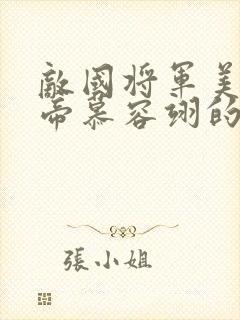 敵國將軍美
帝慕容翊的
張小姐